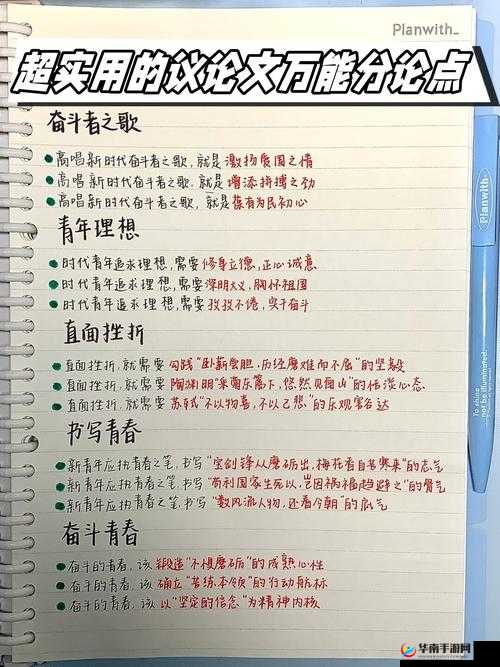 Planwith_
超实用的议论文万能分论点
奋斗者之歌
高唱新时代奋斗者之歌,就是激扬爱国之情
高唱新时代奋斗者之歌,就是增添拼搏之劲
高唱新时代奋斗者之歌,就是葆有为民初心
青年理想
时代青年追求理想,需要修身立德,正心诚意
时代青年追求理想,需要深明大义,胸怀祖国
时代青年追求理想,需要孜孜不倦,实干奋斗
直面挫折
直面挫折,就需要勾践"卧薪尝胆,历经磨难而不屈"的坚毅
直面挫折,就需要陶渊明"采菊东篱下,悠然见南山"的恬淡心态
直面挫折,就需要苏轼"不以物喜,不以己悲"的乐观豁达
书写青春
新青年应执青春之笔,书写"宝剑锋从磨砺出,梅花香自苦寒来"的志气
新青年应执青春之笔,书写"苟利国家生死以,岂因祸福趋避之"的骨气
新青年应执青春之笔,书写"数风流人物,还看今朝"的底气
奋斗青春
奋斗的青春,该锻造"不惧磨砺"的成熟心性
奋斗的青春,该确立"苦练本领"的行动航标
奋斗的青春,该以"坚定的信念"为精神内核
Planwith_
To shine
not be illuminated.
华南手游网